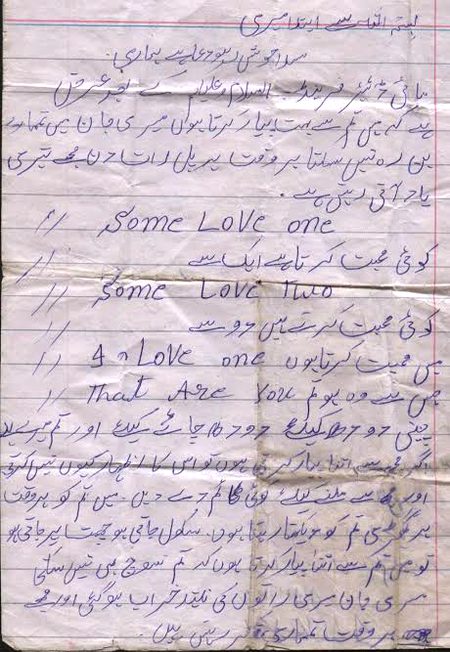 بسم اللہ سے ابتدا میری
سدا خوش رہو دعا ہے ہماری
ہائی ڈیئر فرینڈ السلام وعلیکم کے بعد عرض
ہے کہ میں تم سے بہت پیار کرتا ہوں میری جان میں تمہارے
بن رہ نہیں سکتا ہر وقت ہر پل رات دن مجھے تیری
یاد آتی رہتی ہے۔
// Some Love one
// کوئی محبت کرتا ہے ایک سے
// Some Love Two
// کوئی محبت کرتے ہیں دو سے
// میں محبت کرتا ہوں Love one
// That Are You جس سے وہ ہو تم
چینی دودھ کیلئے دودھ چائے کیلئے اور تم میرے
اگر مجھ سے اتنا پیار کرتی ہوں تو اس کا اظہار کیوں نہیں کرتی
اور مجھ سے ملنے کیلئے کوئی ٹائم دے دیں۔ میں تم کو ہر وقت
ہر گھڑی تم کو رہتا ہوں۔ سکول جاتی ہو چھت پر جاتی ہو
تو میں تم سے اتنا پیار کرتا ہوں کہ تم سوچ بھی نہیں سکتی
میری جان میری راتوں کی نیند خراب ہو گئی اور مجھے
ہر وقت تمہاری فکر رہتی ہیں۔